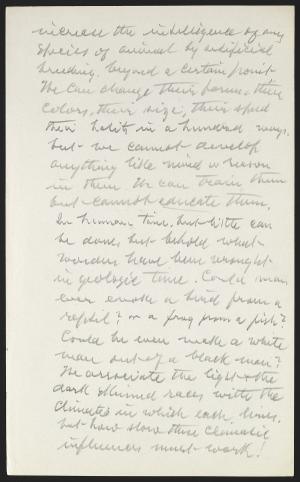 increase the intelligence of any
species of animal by artificial
breeding, beyond a certain point
We can change their forms, their
colors, their size, their speed
their habits in a hundred ways.
but we cannot develop
anything like mind or reason
in them. We can train them
but cannot educate them.
In human time, but little can
be done, but behold what
wonders have been wrought
in geologic time. Could man
ever evoke a bird from a
reptil? or a frog from a fish?
Could he even make a white
man out of a black man?
We associate the light & the
dark skinned races with the
Climates in which each lives.
but how slow those Climatic
influences must work!